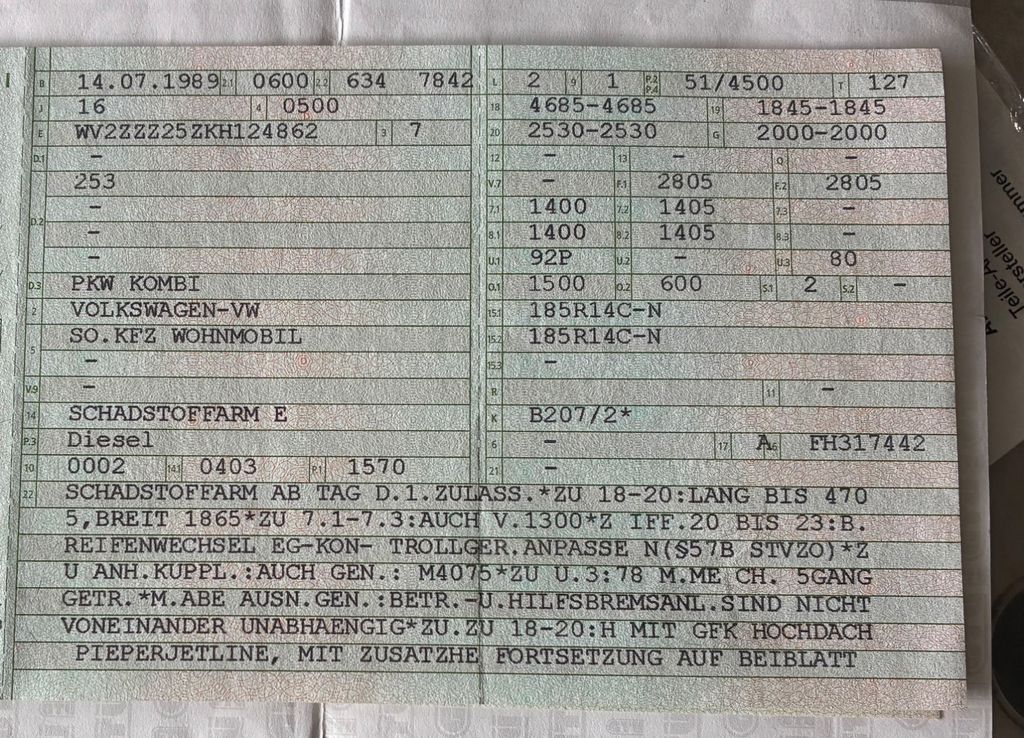 B 14.07.1989 2.1 0600 2.2 634 7842
J 16 4 0500
E WV2ZZZ25ZKH124862 3 7
D.1 –
253
D.2 –
–
–
D.3 PKW KOMBI
2 VOLKSWAGEN-VW
5 SO.KFZ WOHNMOBIL
–
V.9 –
14 SCHADSTOFFARM E
P.3 Diesel
10 0002 14.1 0403 P.1 1570
L 2 9 1 P.2 P.4 51/4500 T 127
18 4685-4685 19 1845-1845
20 2530-2530 G 2000-2000
12 – 13 – Q –
V.7 – F.1 2805 F.2 2805
7.1 1400 7.2 1405 7.3 –
8.1 1400 8.2 1405 8.3 –
U.1 92P U.2 – U.3 80
O.1 1500 O.2 600 S.1 2 S.2 –
15.1 185R14C-N
15.2 185R14C-N
15.3 –
R 11 –
K B207/2*
6 – 17 A 16 FH317442
21 –
22 SCHADSTOFFARM AB TAG D.1.ZULASS.*ZU 18-20:LANG BIS 470
5,BREIT 1865*ZU 7.1-7.3:AUCH V.1300*Z IFF.20 BIS 23:B.
REIFENWECHSEL EG-KON- TROLLGER.ANPASSE N(§57B STVZO)*Z
U ANH.KUPPL.:AUCH GEN.: M4075*ZU U.3:78 M.ME CH. 5GANG
GETR.*M.ABE AUSN.GEN.:BETR.-U.HILFSBREMSANL.SIND NICHT
VONEINANDER UNABHAENGIG*ZU.ZU 18-20:H MIT GFK HOCHDACH
PIEPERJETLINE, MIT ZUSATZHE FORTSETZUNG AUF BEIBLATT